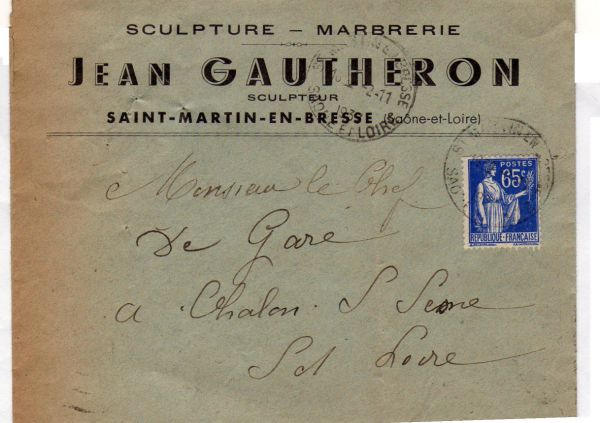 SCULPTURE – MARBRERIE
JEAN GAUTHERON
SCULPTEUR
SAINT-MARTIN-EN-BRESSE (Saône-et-Loire)
POSTES
65c
RÉPUBLIQUE-FRANÇAISE
Monsieur le Chef
De Gare
a Chalon S Sane
S et Loire